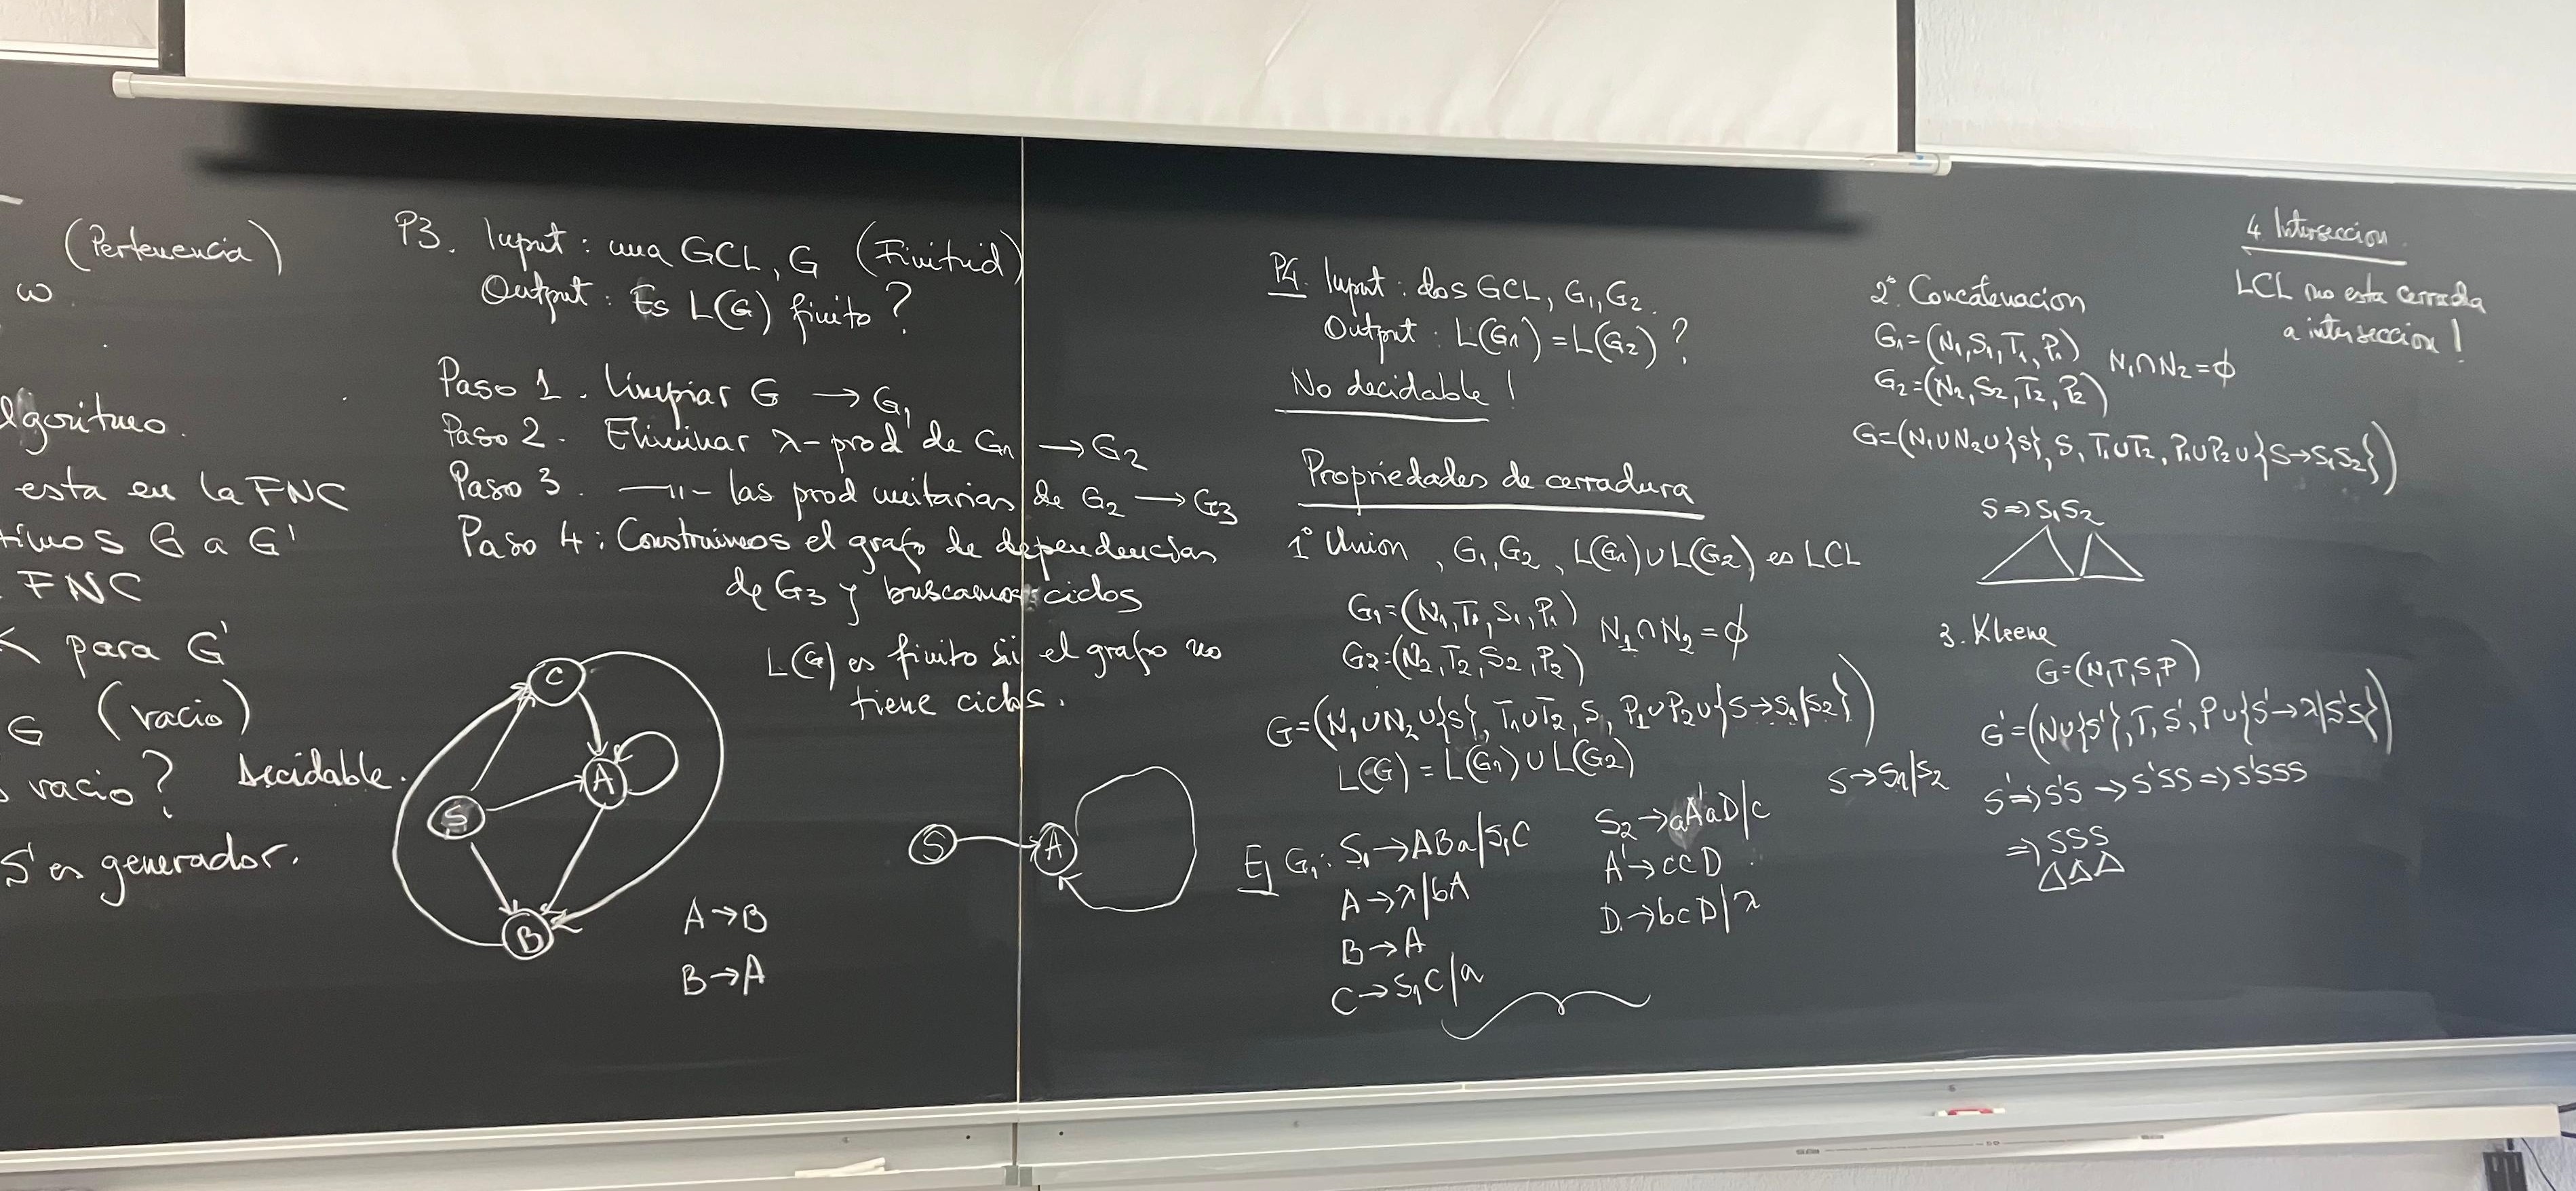 (Pertenencia)
w.
lgoritmo.
esta en la FNC
timos G a G'
FNC
para G'
G (vacio)
vacio? Decidable.
S es generador.
P3. Input: una GCL, G (Finitud)
Output: Es L(G) finito?
Paso 1. Limpiar G → G₁
Paso 2. Eliminar λ-prod de G₁ → G₂
Paso 3. —"— las prod unitarias de G₂ → G₃
Paso 4: Construimos el grafo de dependencias
de G₃ y buscamos ciclos
L(G) es finito sii el grafo no
tiene ciclos.
C
A
S
B
A→B
B→A
S A
P4. Input: dos GCL, G₁, G₂.
Output: L(G₁)=L(G₂)?
No decidable!
Propriedades de cerradura
1° Union, G₁, G₂, L(G₁)∪L(G₂) es LCL
G₁=(N₁,T₁,S₁,P₁) N₁∩N₂=∅
G₂=(N₂,T₂,S₂,P₂)
G=(N₁∪N₂∪{S}, T₁∪T₂, S, P₁∪P₂∪{S→S₁|S₂})
L(G)=L(G₁)∪L(G₂)
S→S₁|S₂
Ej G₁: S₁→ABa|S₁C
A→λ|bA
B→A
C→S₁C|a
S₂→aA'aD|c
A'→ccD
D→bcD|λ
2° Concatenacion
G₁=(N₁,S₁,T₁,P₁) N₁∩N₂=∅
G₂=(N₂,S₂,T₂,P₂)
G=(N₁∪N₂∪{S}, S, T₁∪T₂, P₁∪P₂∪{S→S₁S₂})
S⇒S₁S₂
3. Kleene
G=(N,T,S,P)
G'=(N∪{S'},T,S',P∪{S'→λ|S'S})
S'⇒S'S→S'SS⇒S'SSS
⇒SSS
4 Interseccion.
LCL no esta cerrada
a interseccion!